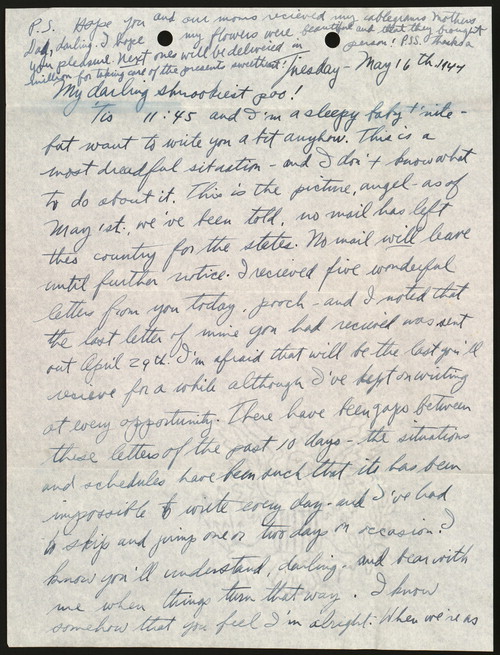 P.S. Hope you and our moms recieved my cablegrams Mothers
Day, darling. I hope my flowers were beautiful and that they brought
you pleasure. Next ones will be delivered in person! P.S.S. Thanks a
million for taking care of the presents sweetheart!
Tuesday - May 16th 1944
My darling shnookiest poo!
'Tis 11:45 and I'm a sleepy baby t'nite -
but want to write you a bit anyhow. This is a
most dreadful situation - and I don't know what
to do about it. This is the picture, angel - as of
May 1st., we've been told, no mail has left
this country for the states. No mail will leave
until further notice. I recieved five wonderful
letters from you today, pooch - and I noted that
the last letter of mine you had recieved was sent
out April 29th. I'm afraid that will be the last you'll
recieve for a while although I've kept on writing
at every opportunity. There have been gaps between
these letters of the past 10 days - the situations
and schedules have been such that its has been
impossible to write every day - and I've had
to skip and jump one or two days on occasion. I
know you'll understand, darling - and bear with
me when things turn that way. I know
somehow that you feel I'm alright. When we're as